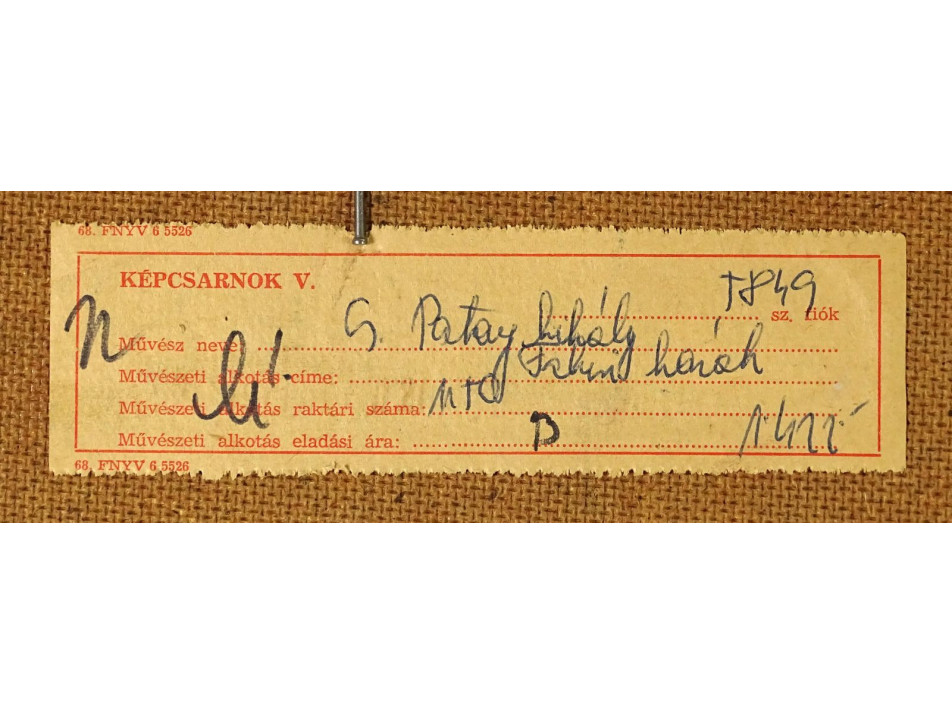 68. FNYV 6 5526
KÉPCSARNOK V.
T849 sz. fiók
Művész neve: G. Patay Mihály
Művészeti alkotás címe: házak
Művészeti alkotás raktári száma:
Művészeti alkotás eladási ára: B
68. FNYV 6 5526